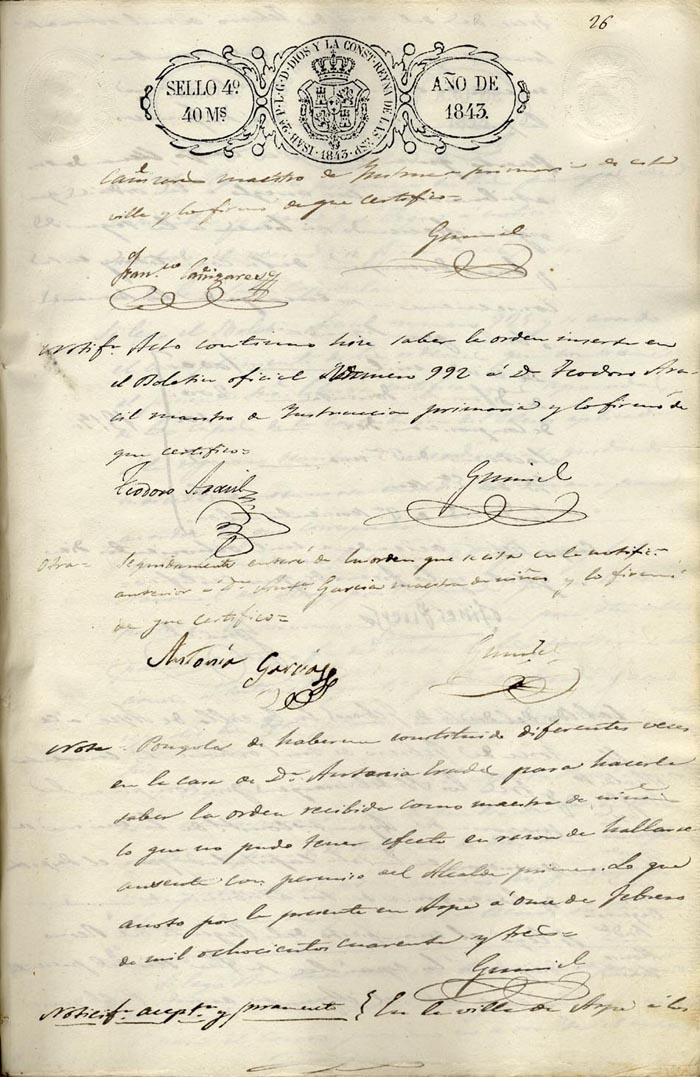 26
SELLO 4º
40 Ms
ISAB. 2ª P. L. G. D. DIOS Y LA CONST. REYNA DE LAS ESP.
1843
AÑO DE
1843.
maestro de primaria de esta
villa y lo firmo de que certifico=
Gumiel
Franco Cañizares
Notifn Acto continuo hice saber la orden inserta en
el Boletin oficial Numero 992 á Dn Teodoro Ara-
cil maestro de Instruccion primaria y lo firmó de
que certifico=
Teodoro Aracil
Gumiel
Otra= Seguidamente enteré de la orden que se cita en la notifn
anterior á Dña Anta Garcia maestra de niñas y lo firmó
de que certifico=
Antonia Garcia
Gumiel
Nota. Pongola de haberme constituido diferentes veces
en la casa de Dña Antonia para hacerla
saber la orden recibida como maestra de niñas
lo que no pudo tener efecto en razon de hallarse
ausente con permiso del Alcalde primero. Lo que
anoto por la presente en Aspe á once de Febrero
de mil ochocientos cuarenta y tres=
Gumiel
Notificn aceptn y juramento } En la villa de Aspe á los